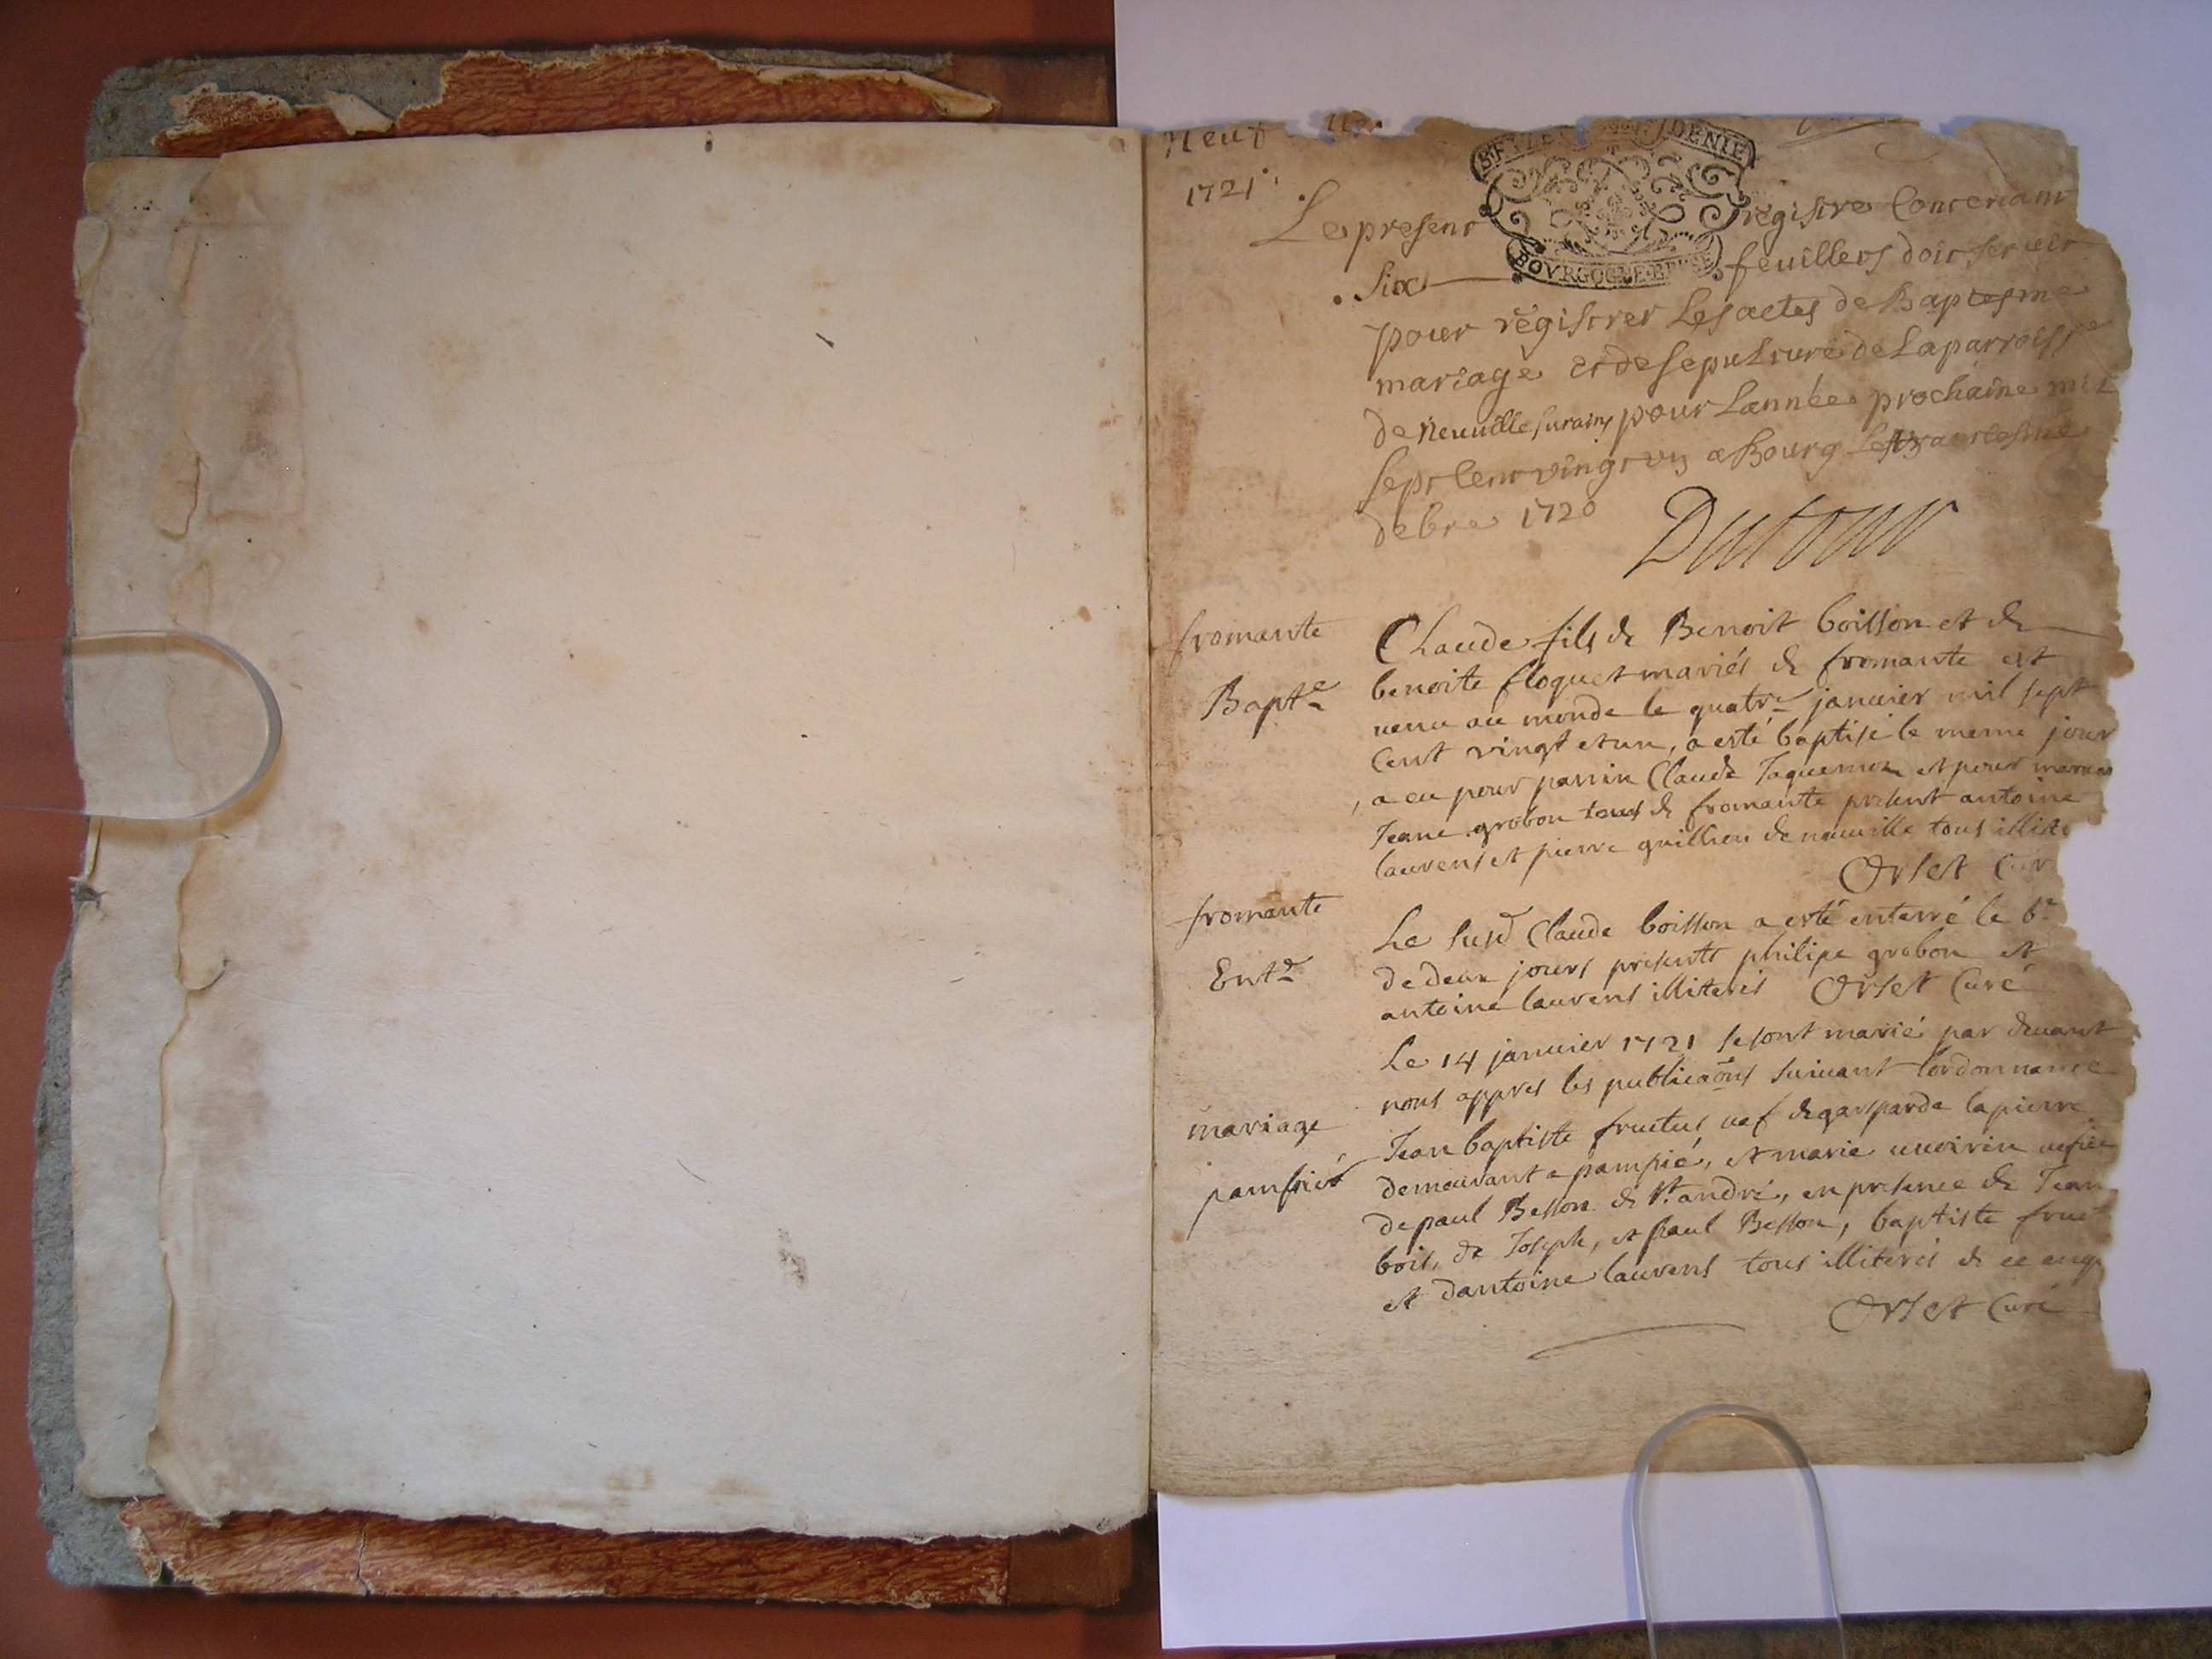 Neuf
1721
Le present registre Contenant
Six feuillets doit servir
pour registrer Les actes de Baptesme
mariage et de sepulture de La parroisse
de Neuville sur ains pour L'année prochaine mil
sept Cent vingt un a Bourg Le
debre 1720
Dutour
BOVRGOGNE
fromante
Bapte
Claude fils de Benoit boisson et de
benoite floquet mariés de fromante est
venu au monde le quatre janvier mil sept
Cent vingt et un, a esté baptisé le meme jour
, a eu pour parrin Claude Taquemon et pour
Jeane grobon tous de fromante present antoine
laurens et pierre guillion de neuville tous illite
Orset Cur
fromante
Entt
Le susd Claude boisson a esté enterré le 6e
de deux jours presents philipe grobon et
antoine laurens illiterés Orset Curé
mariage
pampié
Le 14 janvier 1721 se sont marié par devant
nous appres les publicaons suivant lordonnance
Jean baptiste fructus vef de gasparde lapierre
demeurant a pampié, et marie
de paul Besson de st. andré, en presence de Jean
bois, de Joseph, et paul Besson, baptiste fruct
et dantoine laurens tous illiterés de ce enq
Orset Curé